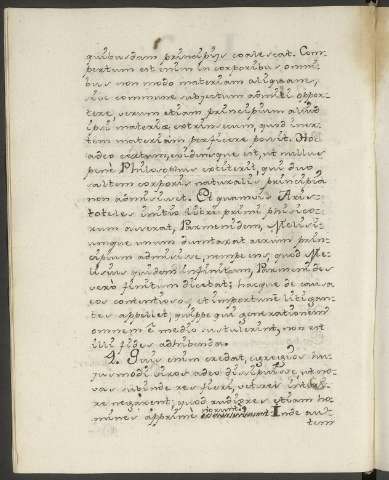 quibusdam principijs coalescat. Com-
pertum est enim in corporibus omni-
bus non modo materiam aliquam,
sive commune subjectum admitti oppor-
tere, verum etiam principium aliud
ipsi materiæ extrinsecum, quod iner-
tem materiam perficere possit. Hoc
adeo certum, evidensque est, ut nullus
pene Philosophus extiterit, qui duo
saltem corporis naturalis principia
non admisisset. Et quamvis Aris-
toteles initio libri primi physico-
rum asserat, Parmenidem, Melissu-
mque unum dumtaxat rerum prin-
cipium admisisse, nempe ens, quod Me-
lissus quidem infinitum, Parmenides
vero finitum dicebat; hacque de causa
eos contentiosos, et importune litigan-
tes appellet, quippe qui generationem
omnem è medio sustulerint, non est
illi fides adhibenda.
4. Quis enim credat, egregios hu-
jusmodi viros adeo desipuisse, ut no-
vas subinde res fieri, veteres interi-
re negarent; quod rudiores etiam ho-
mines apprimè norunt? Inde au-
tem